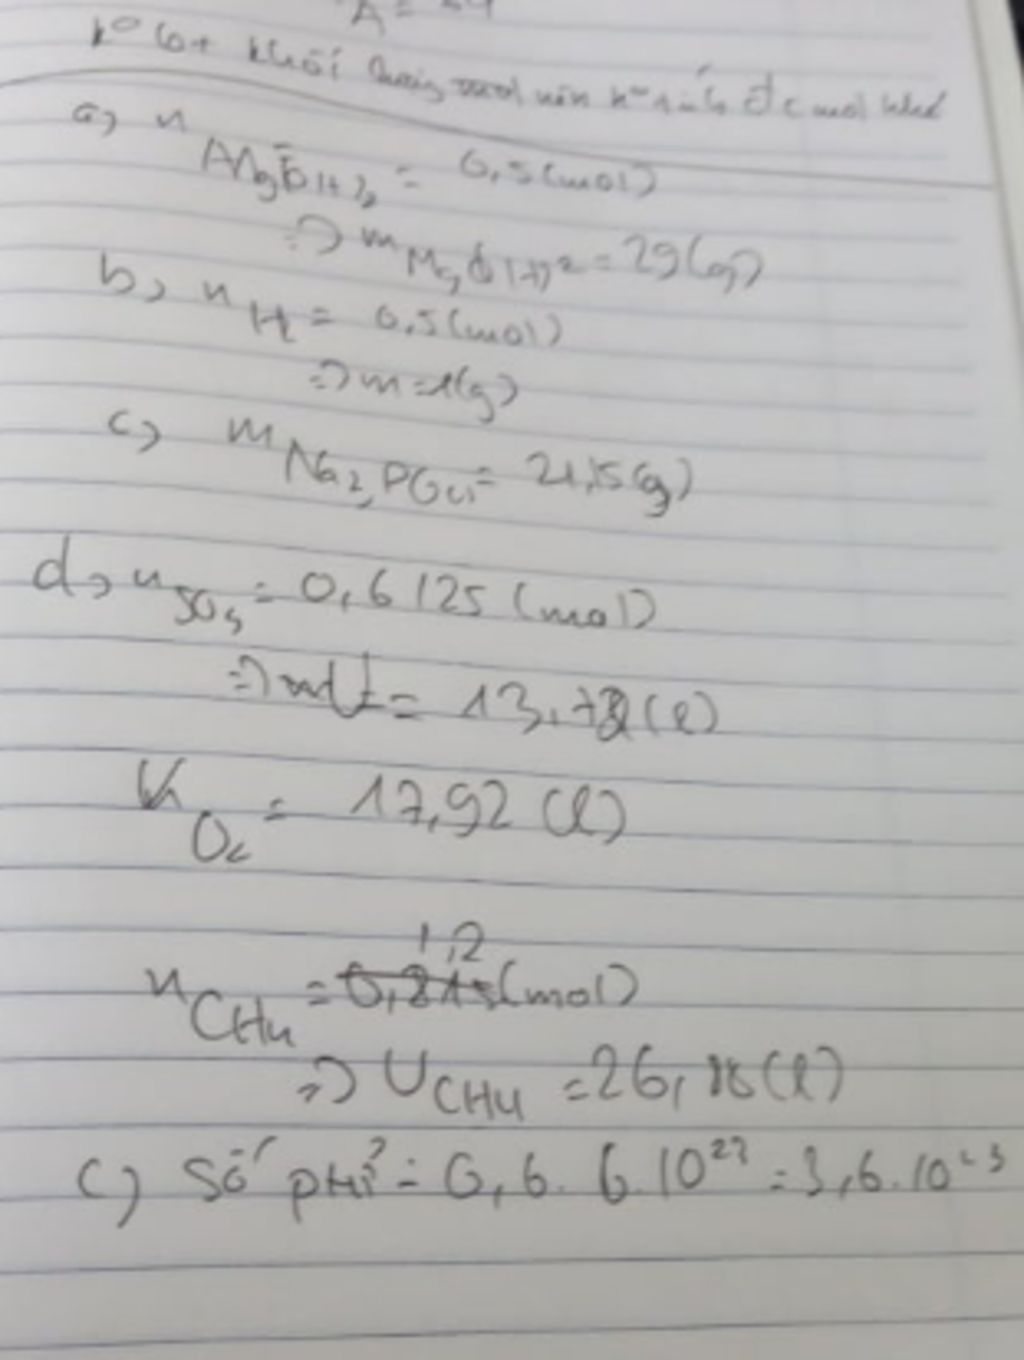 A =
khối mol nên mol
a, n Mg(OH)2 = 0,5(mol)
=> m Mg(OH)2 = 29(g)
b, n H = 0,5(mol)
=> m = 1(g)
c, m Na2PO4 = 21,15(g)
d, n SO3 = 0,6125 (mol)
= 13,72(l)
V O2 = 17,92 (l)
1,2
n CH4 = (mol)
=> V CH4 = 26,88(l)
c) số ptử = 0,6. 6.10²³ = 3,6.10²³